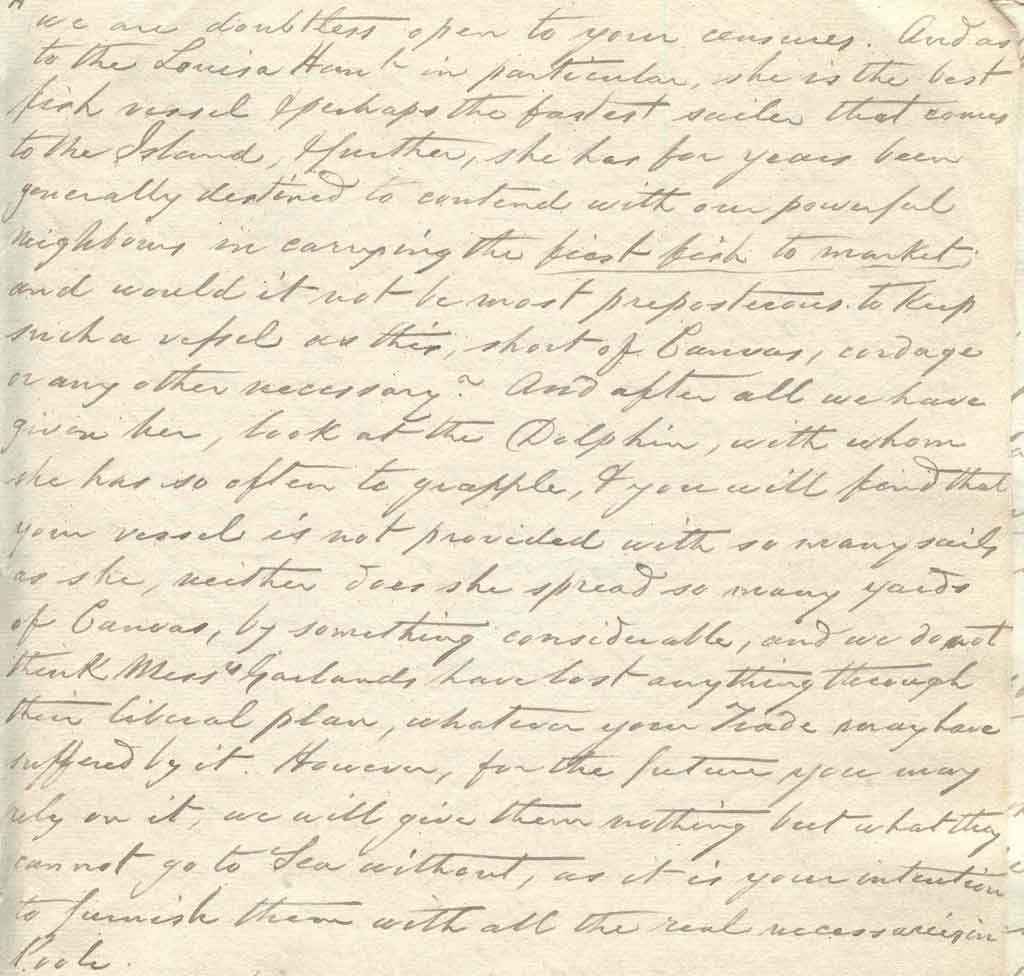 we are doubtless open to your censures. And as
to the Louisa in particular, she is the best
fish vessel & perhaps the fastest sailer that comes
to the Island, & further, she has for years been
generally destined to contend with our powerful
neighbours in carrying the first fish to market,
and would it not be most preposterous to keep
such a vessel as this, short of Canvas, cordage
or any other necessary? And after all we have
given her, look at the Dolphin, with whom
she has so often to grapple, & you will find that
your vessel is not provided with so many sails
as she, neither does she spread so many yards
of Canvas, by something considerable, and we do not
think Messrs Garlands have lost anything through
their liberal plan, whatever your Trade may have
suffered by it. However, for the future you may
rely on it, we will give them nothing but what they
cannot go to Sea without, as it is your intention
to furnish them with all the real necessaries in
Poole.